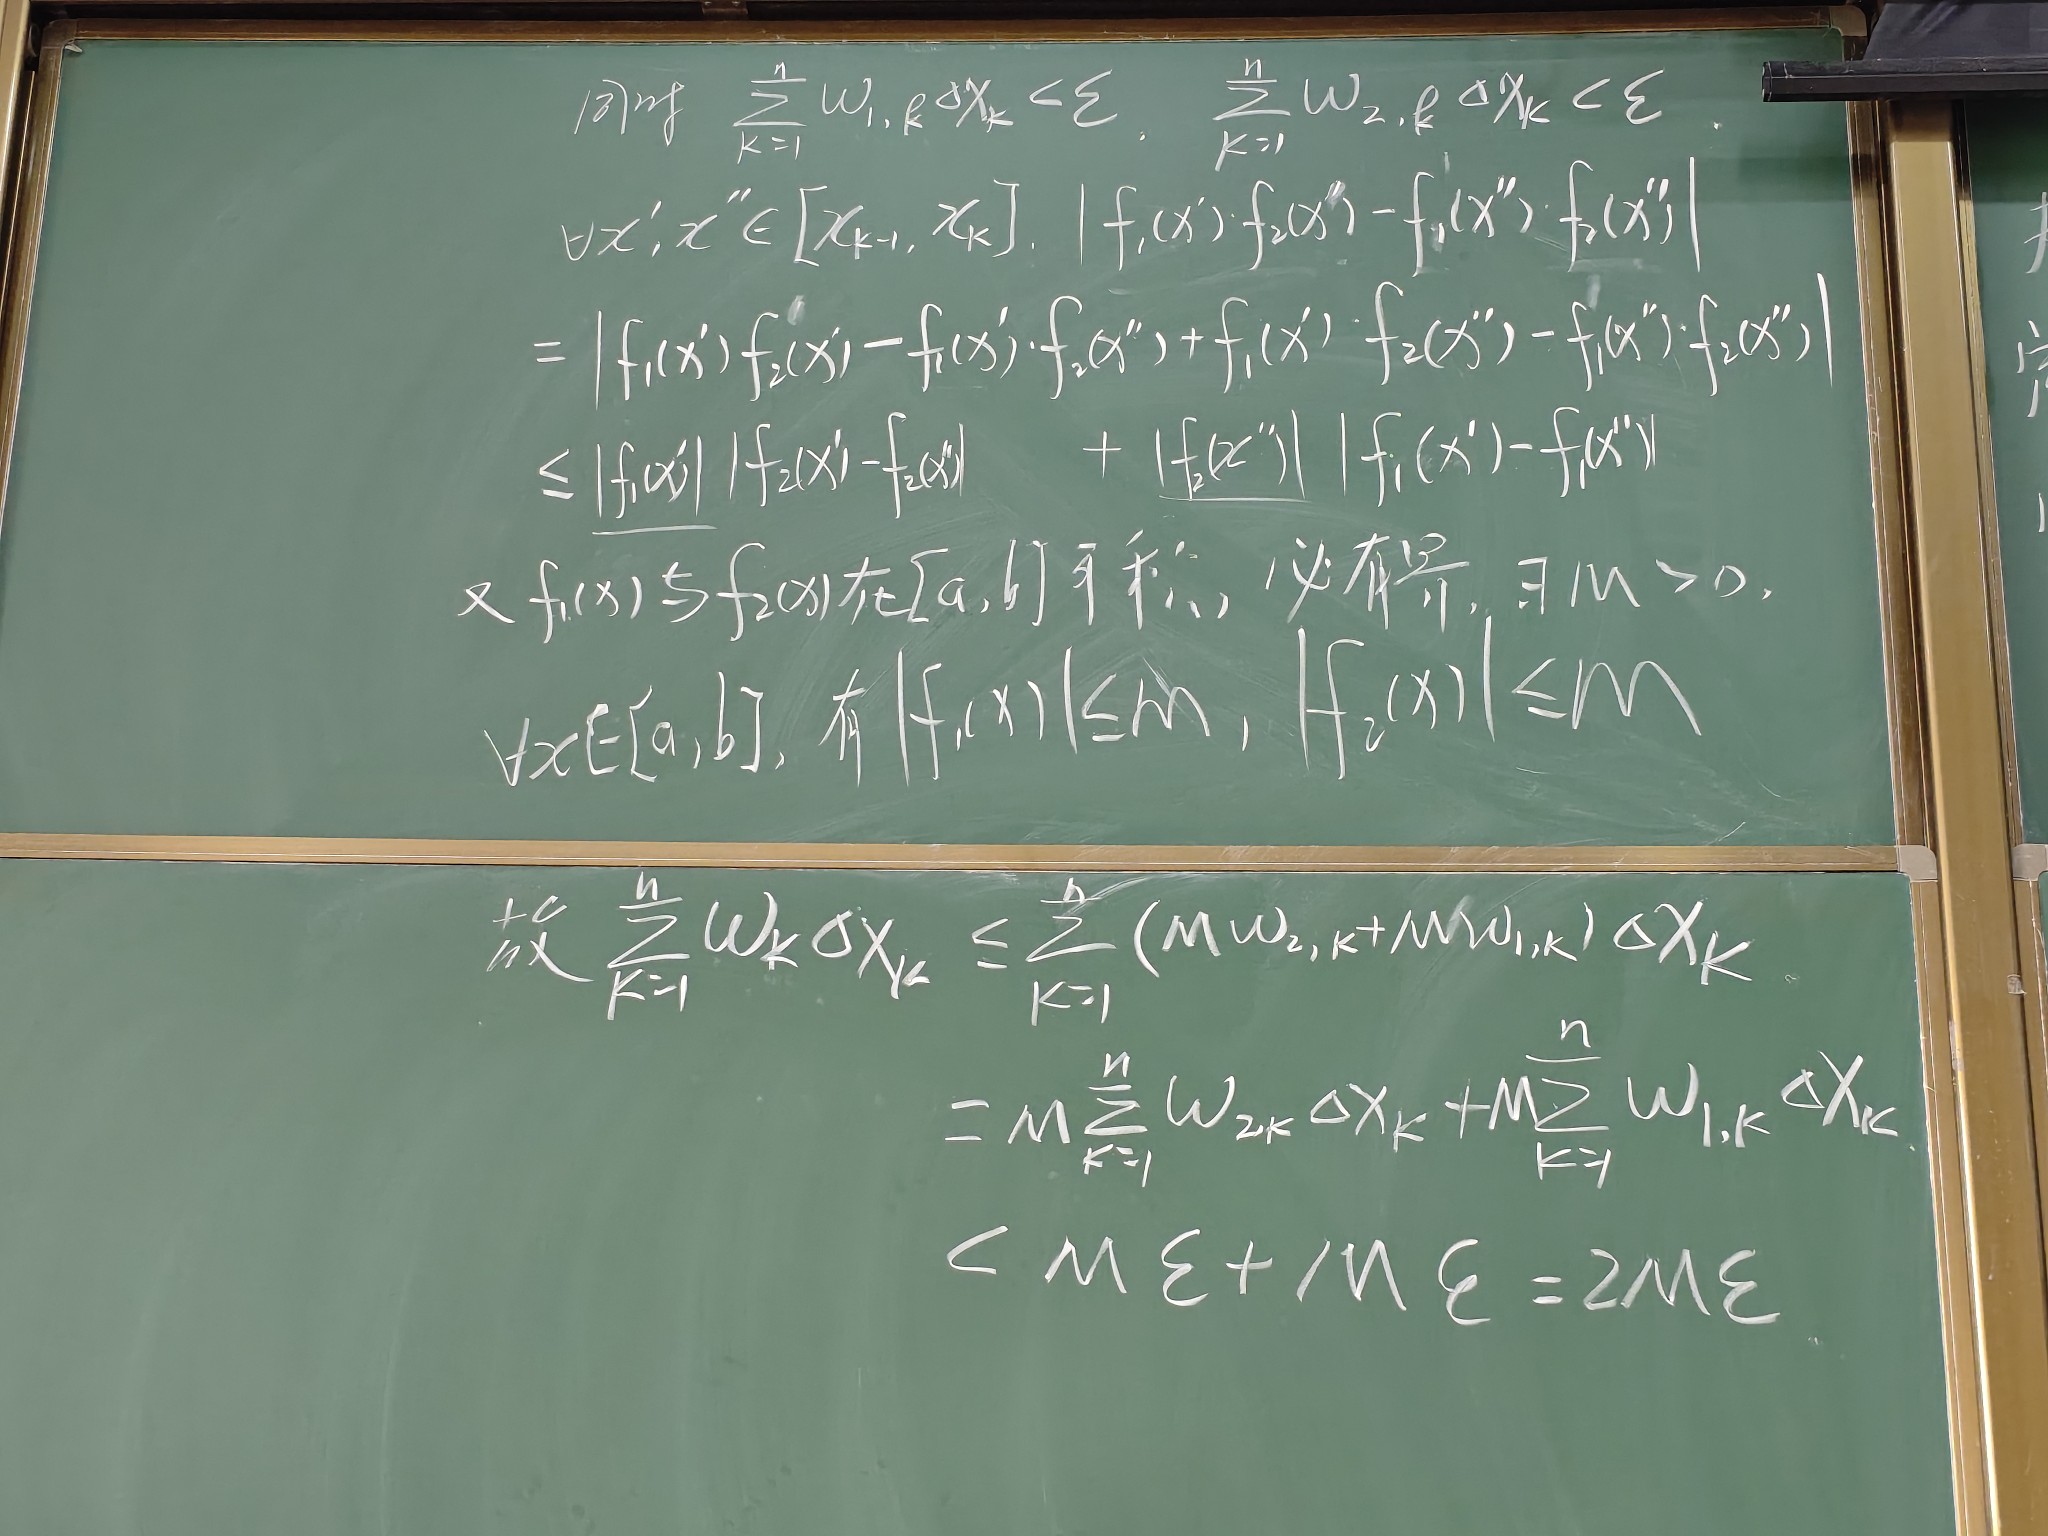 同时 \sum_{k=1}^{n} ω_{1,k} Δx_k < ε, \sum_{k=1}^{n} ω_{2,k} Δx_k < ε.
∀x', x'' ∈ [x_{k-1}, x_k]. |f_1(x')·f_2(x'') - f_1(x'')·f_2(x'')|
= |f_1(x') f_2(x') - f_1(x')·f_2(x'') + f_1(x')·f_2(x'') - f_1(x'')·f_2(x'')|
≤ |f_1(x')| |f_2(x') - f_2(x'')| + |f_2(x'')| |f_1(x') - f_1(x'')|
又 f_1(x) 与 f_2(x) 在 [a, b] 可积, 必有界, ∃M > 0,
∀x ∈ [a, b], 有 |f_1(x)| ≤ M, |f_2(x)| ≤ M
故 \sum_{k=1}^{n} ω_k Δx_k ≤ \sum_{k=1}^{n} (Mω_{2,k} + Mω_{1,k}) Δx_k
= M \sum_{k=1}^{n} ω_{2k} Δx_k + M \sum_{k=1}^{n} ω_{1,k} Δx_k
< Mε + Mε = 2Mε